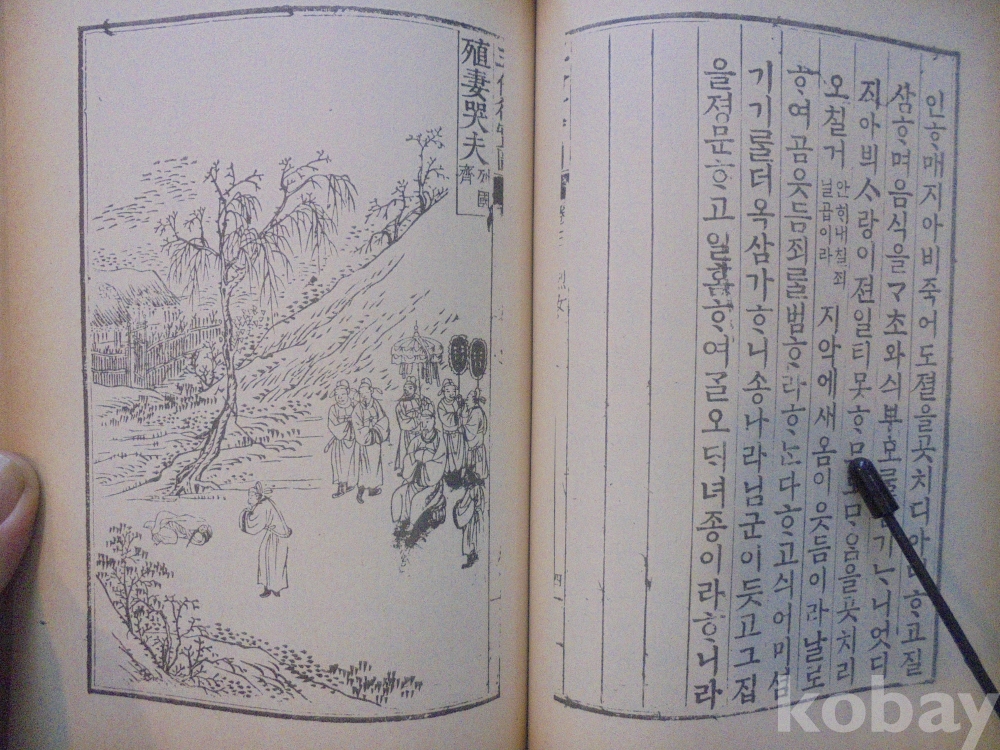 인ᄒᆞ매지아비죽어도졀을곳치디아니ᄒᆞ고질
삼ᄒᆞ며음식을ᄀᆞ초와싀부모를 기ᄂᆞ니엇디
지아븨ᄉᆞ랑이젼일티못ᄒᆞᄆᆞ로ᄆᆞ음을곳치리
오칠거
안해내칠죄
닐곱이라
지악에새옴이웃듬이라날도
ᄒᆞ여곰웃듬죄ᄅᆞᆯ범ᄒᆞ라ᄒᆞᄂᆞᆫ다ᄒᆞ고싀어미셤
기기ᄅᆞᆯ더옥삼가ᄒᆞ니송나라님군이듯고그집
을졍문ᄒᆞ고일홈ᄒᆞ여ᄀᆞᆯ오ᄃᆡ녀종이라ᄒᆞ니라
四
殖妻哭夫
列國
齊
kobay